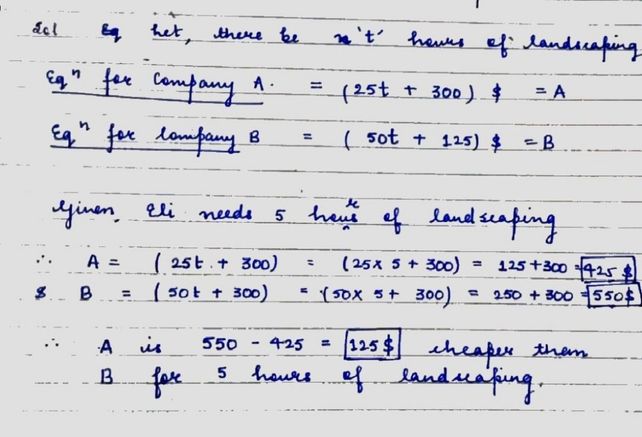 Sol Eq Let, there be 't' hours of landscaping
Eqⁿ for Company A. = (25t + 300) $ = A
Eqⁿ for Company B = (50t + 125) $ = B
Given, Eli needs 5 hours of landscaping
∴ A = (25t + 300) = (25 x 5 + 300) = 125 + 300 = 425 $
& B = (50t + 300) = (50 x 5 + 300) = 250 + 300 = 550 $
∴ A is 550 - 425 = 125 $ cheaper than
B for 5 hours of landscaping.